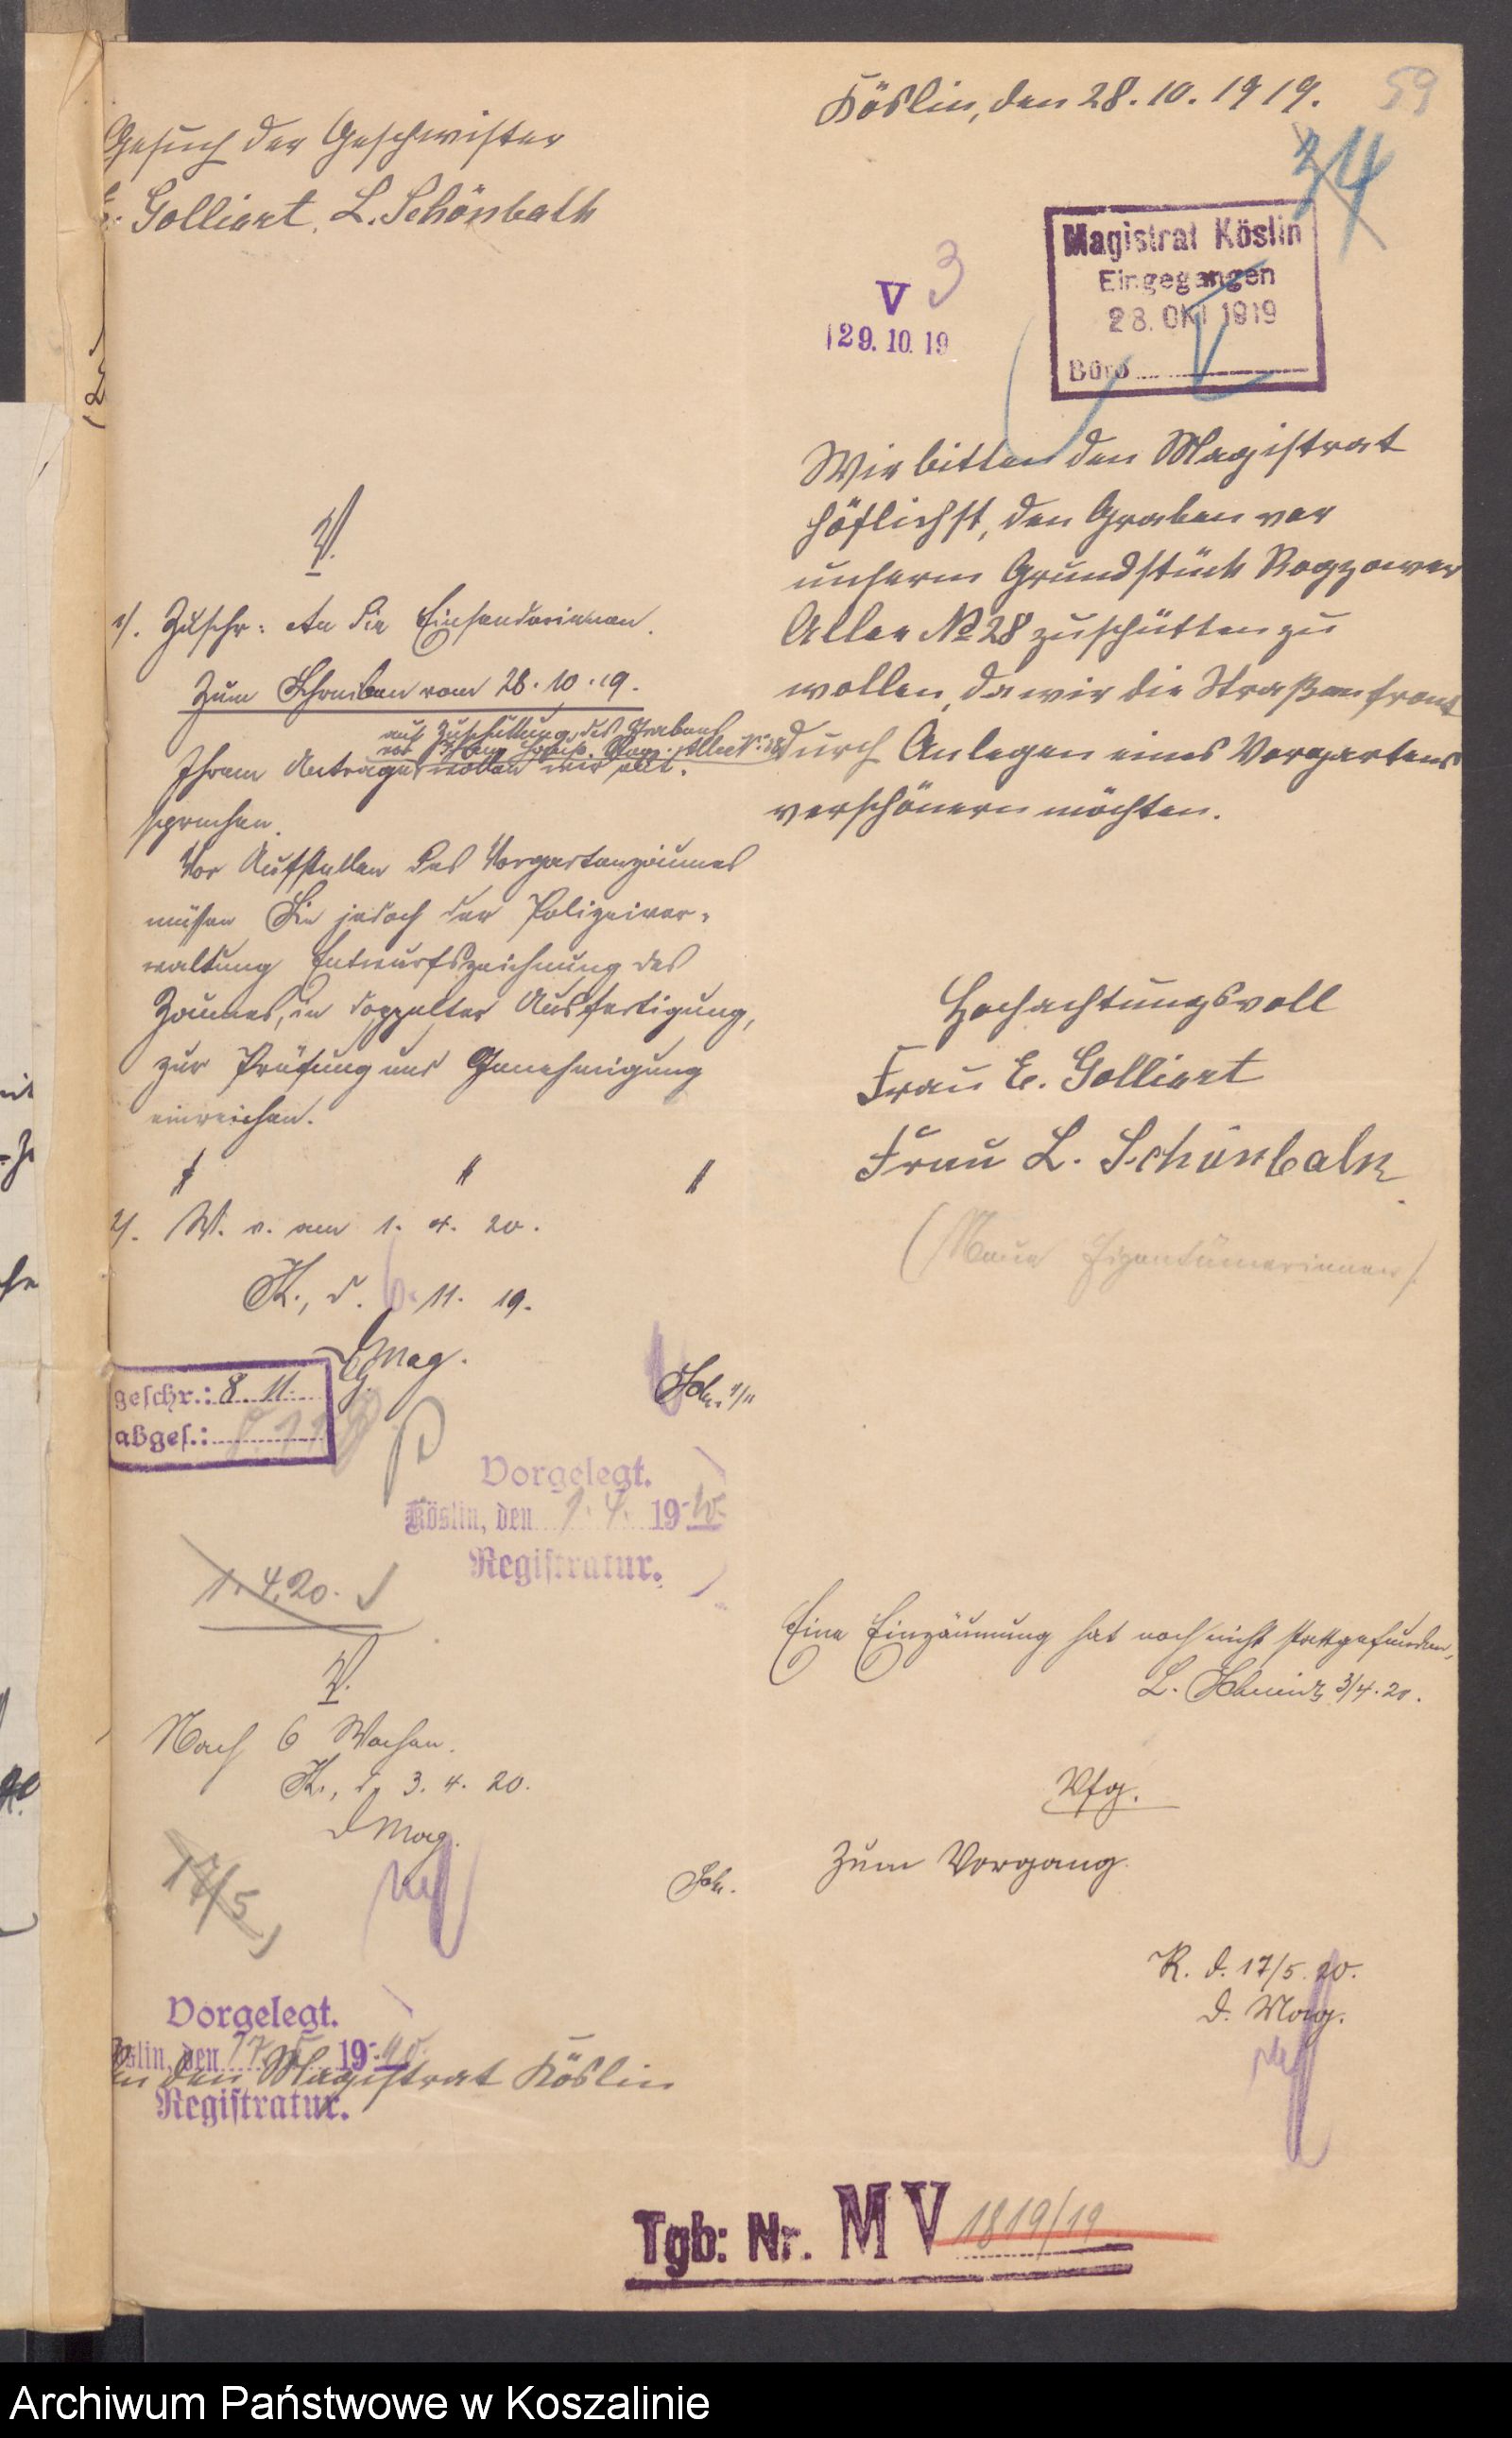 Köslin, den 28.10.1919.
59
34
Gesuch der Geschwister
E. Golliert, L. Schönbohm
Magistrat Köslin
Eingegangen
28. Okt 1919
Büro
V 3
29. 10. 19
Wir bitten den Magistrat
höflichst, den Graben vor
unserm Grundstück Rogzower
Allee No 28 zuschütten zu
wollen, da wir die Straßenfront
durch Anlegen eines Vorgartens
verschönern möchten.
Hochachtungsvoll
Frau E. Golliert
Frau L. Schönbohm
(Neue Eigentümerinnen)
V.
1). Zuschr: An die Einsenderinnen.
Zum Schreiben vom 28.10.19.
auf Zuschüttung des Grabens
vor Ihrem Rogz. Allee N: 28
Ihrem Antrage wollen wir
sprechen.
Vor Aufstellen des Vorgartenzaunes
müssen Sie jedoch der Polizeiver-
waltung Entwurfszeichnung des
Zaunes, in doppelter Ausfertigung,
zur Prüfung und Genehmigung
einreichen.
2). W. v. am 1. 4. 20.
K., d. 6. 11. 19.
D Mag.
geschr.: 8. 11.
abges.:
Vorgelegt.
Köslin, den 1. 4. 1920
Registratur.
1. 4. 20.
V.
Nach 6 Wochen.
K., d. 3. 4. 20.
D Mag.
17/5
Vorgelegt.
Köslin, den 17. 5. 1920
Registratur.
An den Magistrat Köslin
Eine Einzäunung hat noch nicht stattgefunden,
L. Schmidt 3/4. 20.
Vfg.
Zum Vorgang.
K. d. 17/5. 20.
D. Mag.
Tgb: Nr. M V 1819/19
Archiwum Państwowe w Koszalinie